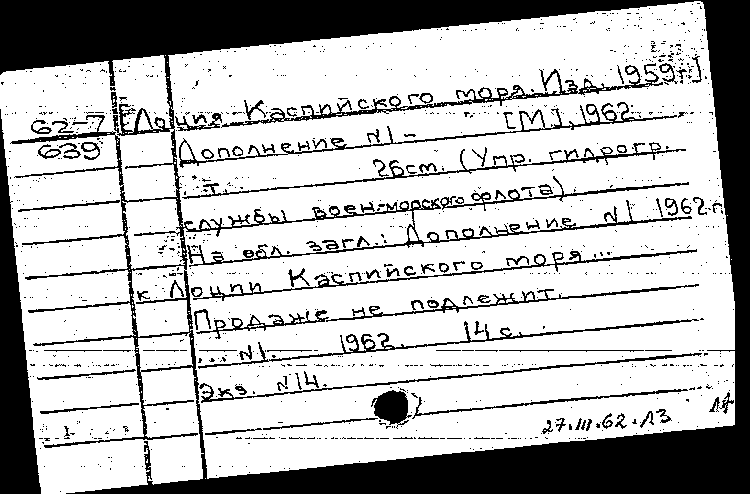 62-7 [Лоция Каспийского моря. Изд. 1959 г.]
639 Дополнение №1- [М], 1962
т. 26 см. (Упр. гидрогр.
службы воен-морского флота).
На обл. загл.: Дополнение №1 1962 г.
к Лоции Каспийского моря...
Продаже не подлежит.
... №1. 1962. 14 с.
Экз. №14.
27.III.62. ЛЗ